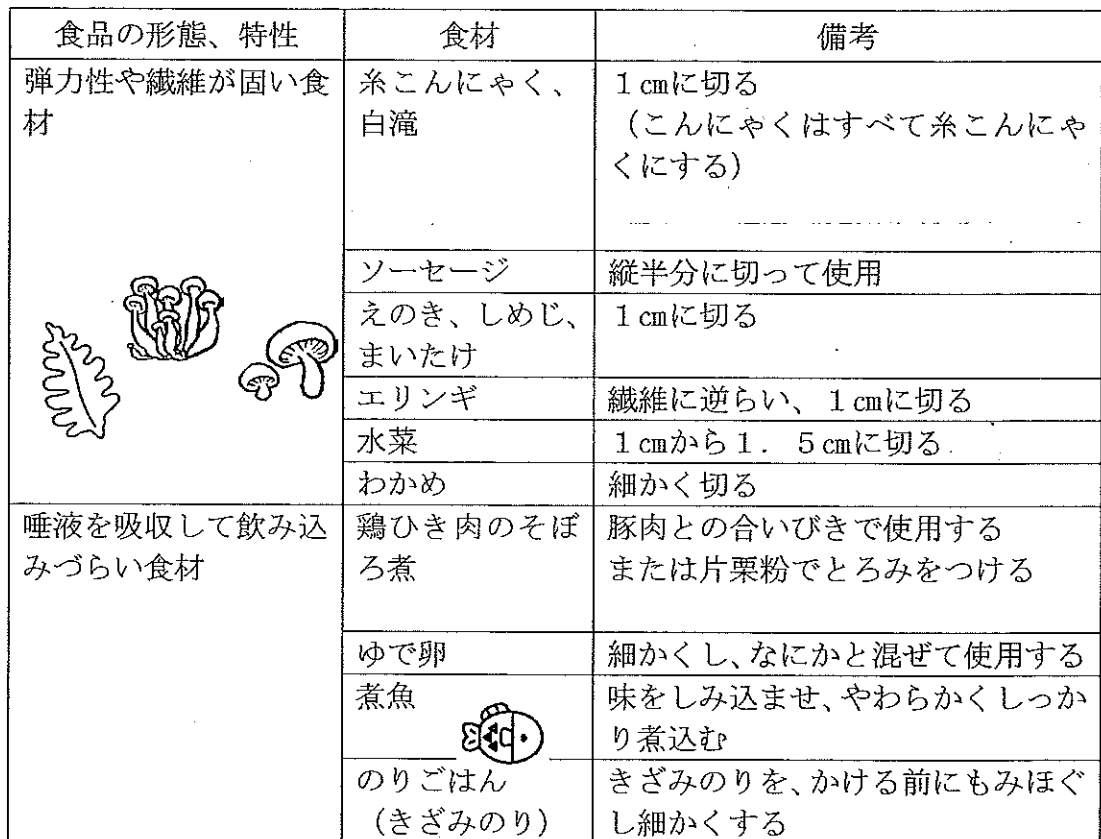 食品の形態、特性
食材
備考
弾力性や繊維が固い食
材
糸こんにゃく、
白滝
1㎝に切る
(こんにゃくはすべて糸こんにゃ
くにする)
ソーセージ
縦半分に切って使用
えのき、しめじ、
まいたけ
1㎝に切る
エリンギ
繊維に逆らい、1㎝に切る
水菜
1㎝から1.5㎝に切る
わかめ
細かく切る
唾液を吸収して飲み込
みづらい食材
鶏ひき肉のそぼ
ろ煮
豚肉との合いびきで使用する
または片栗粉でとろみをつける
ゆで卵
細かくし、なにかと混ぜて使用する
煮魚
味をしみ込ませ、やわらかくしっか
り煮込む
のりごはん
(きざみのり)
きざみのりを、かける前にもみほぐ
し細かくする